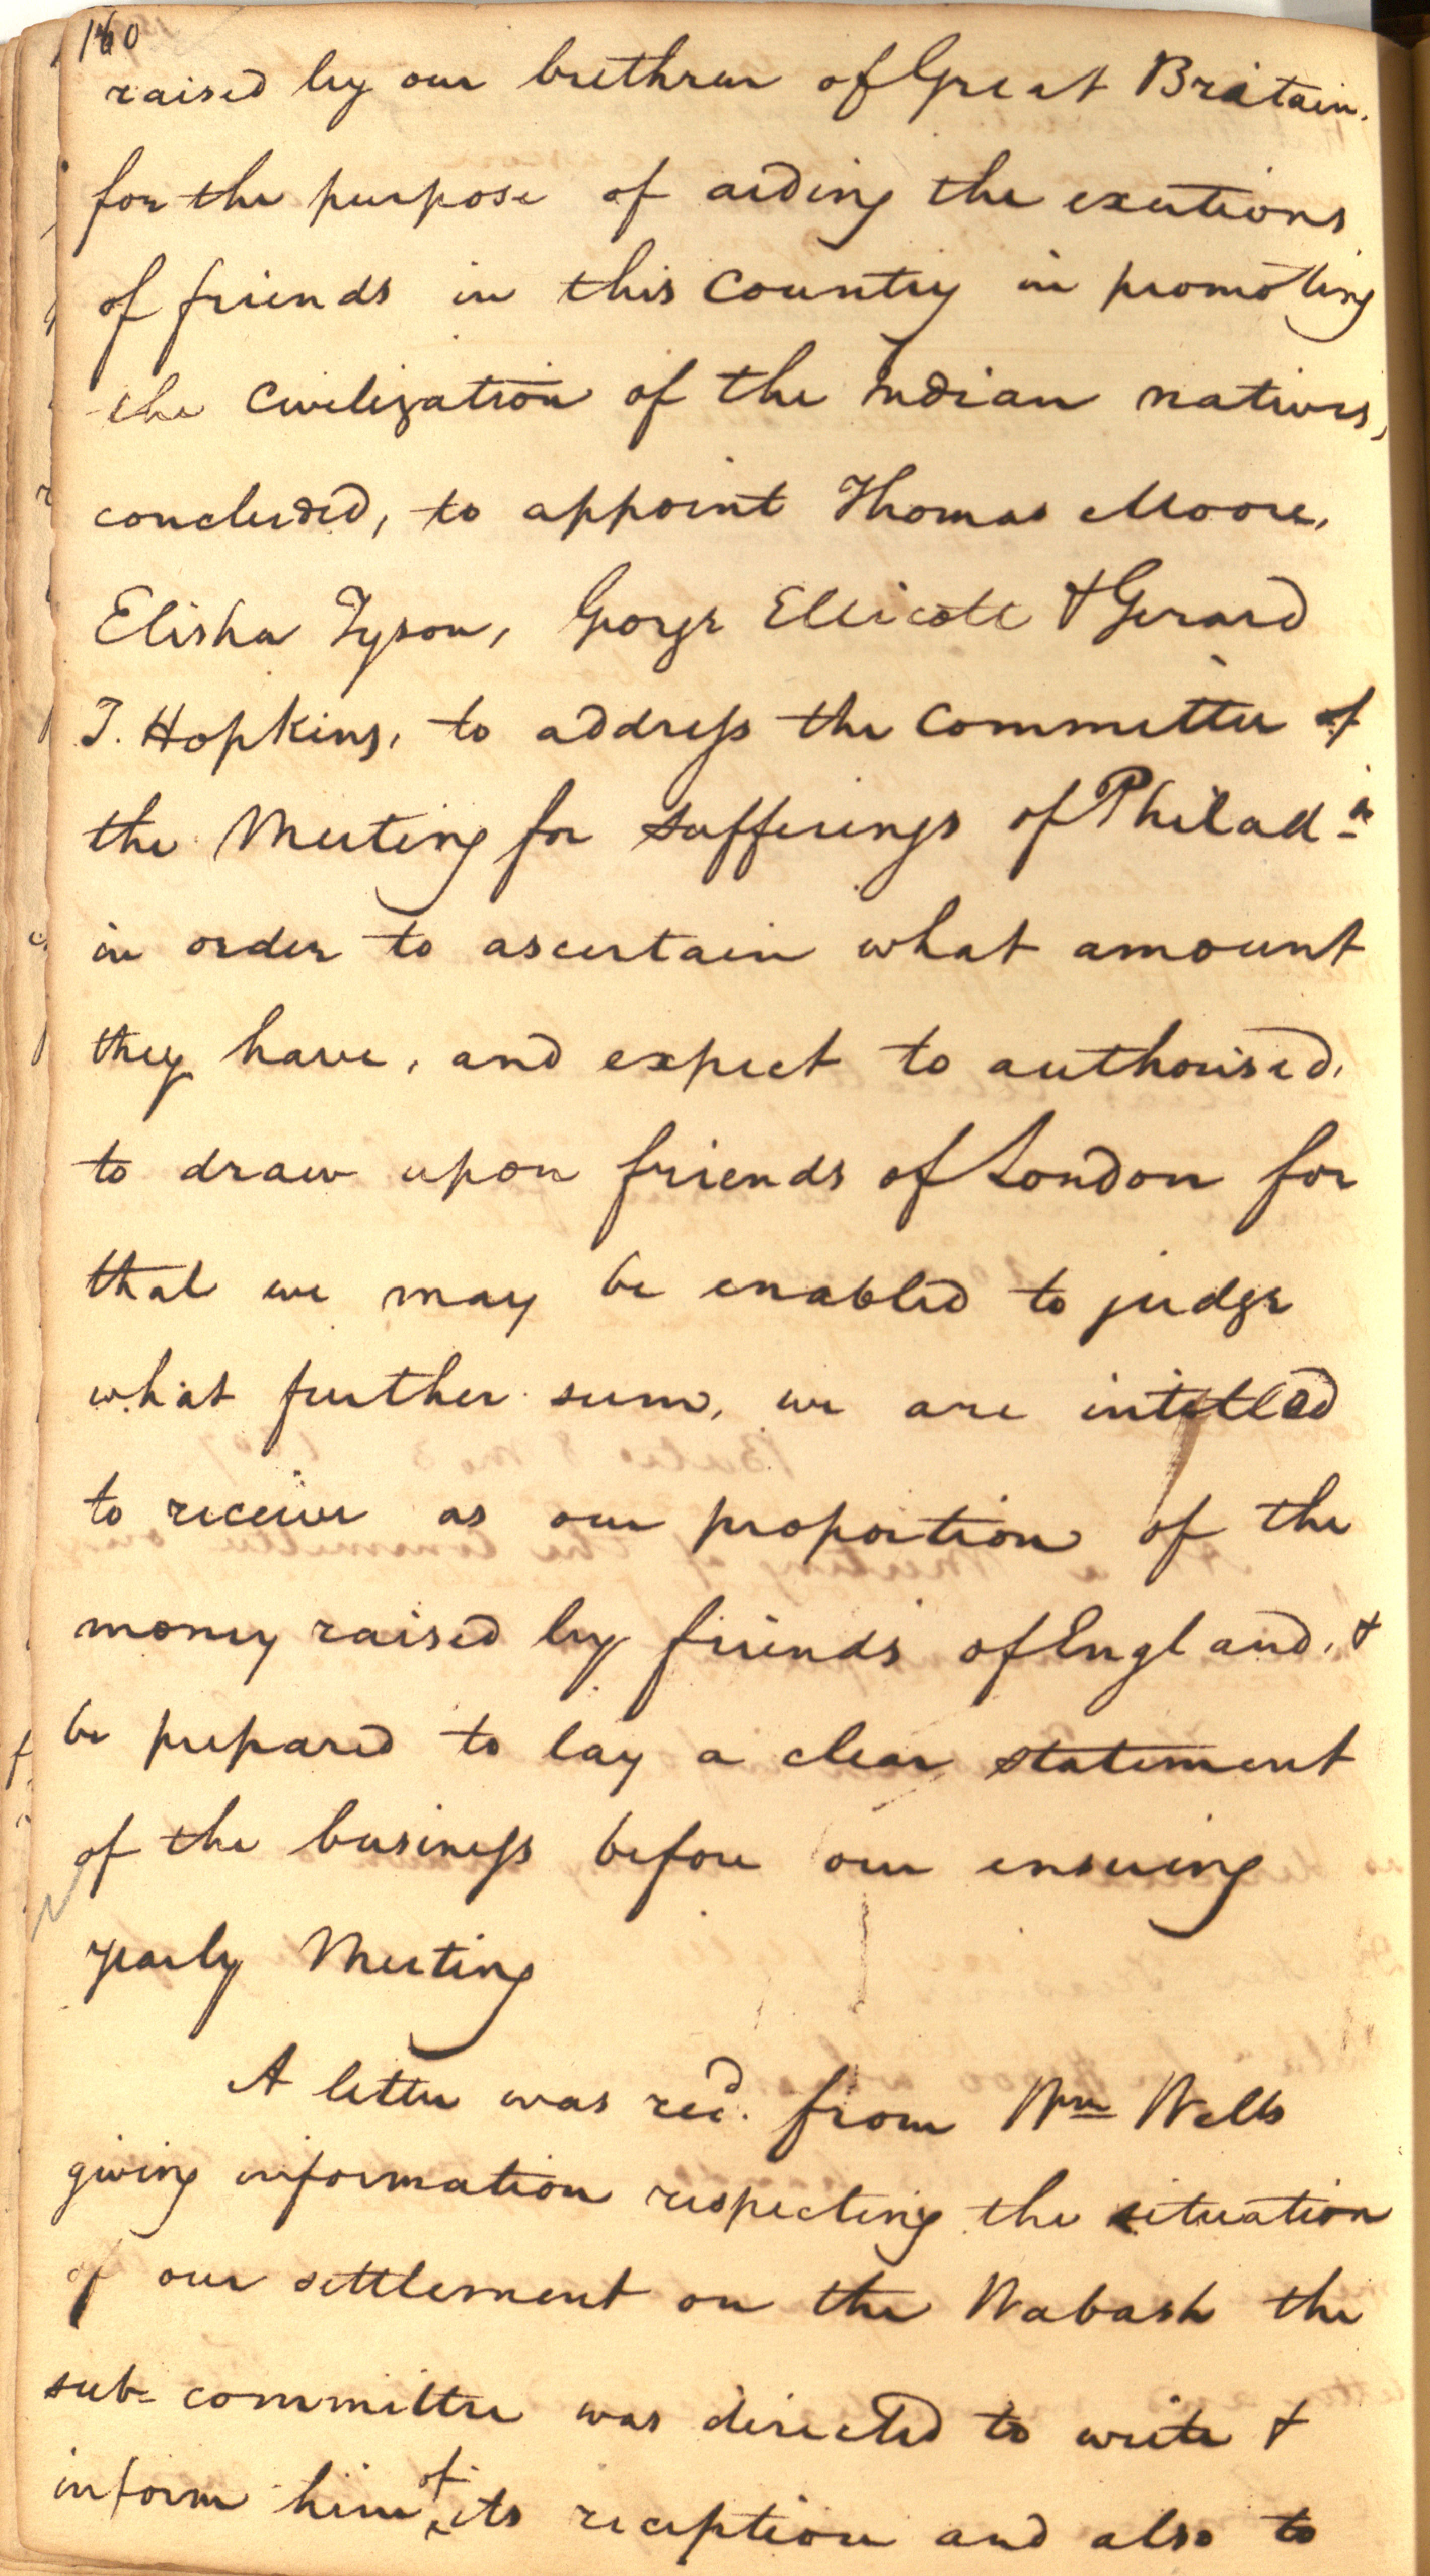 160
raised by our brethren of Great Britain.
for the purpose of aiding the exertions
of friends in this Country in promoting
the Civilization of the Indian natives,
concluded, to appoint Thomas Moore,
Elisha Tyson, George Ellicott & Gerard
T. Hopkins, to address the Committee of
the Meeting for sufferings of Philada
in order to ascertain what amount
they have, and expect to authorised,
to draw upon friends of London for
that we may be enabled to judge
what further sum, we are intitled
to receive as our proportion of the
money raised by friends of England, &
be prepared to lay a clear statement
of the business before our ensuing
yearly Meeting
A letter was recd. from Wm Wells
giving information respecting the situation
of our settlement on the Wabash the
sub-committee was directed to write &
inform him of its reception and also to